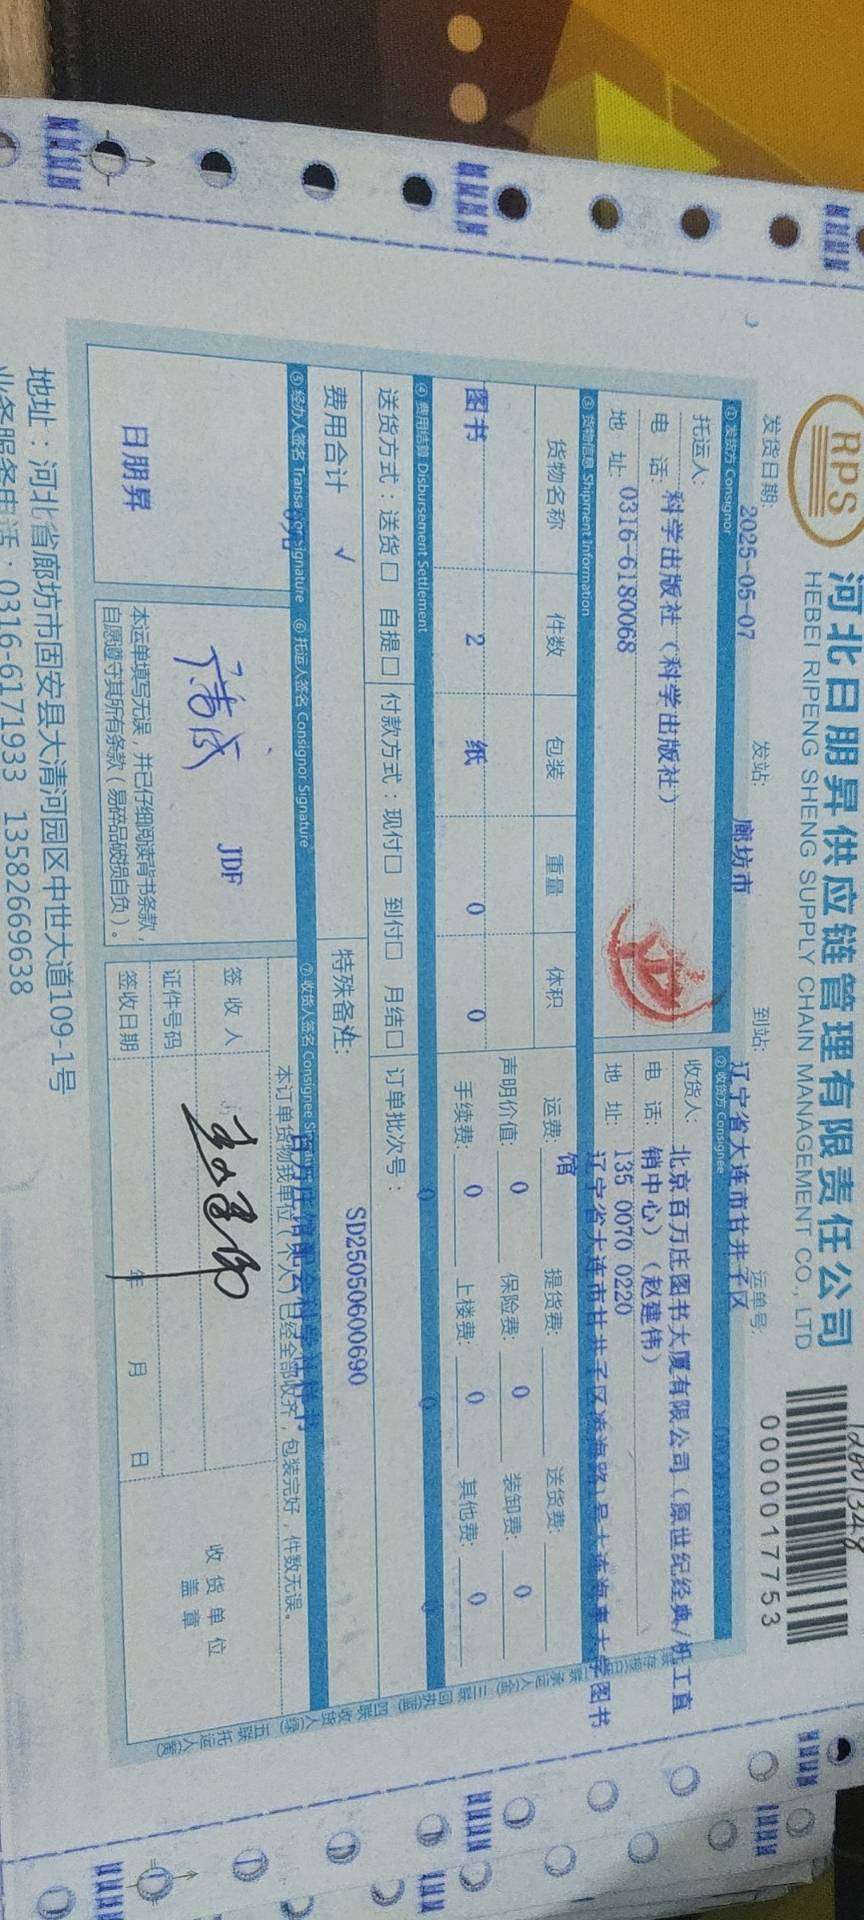 RPS
河北日朋昇供应链管理有限责任公司
HEBEI RIPENG SHENG SUPPLY CHAIN MANAGEMENT CO., LTD
0000017753
发货日期: 2025-05-07 发站: 廊坊市 到站: 辽宁省大连市甘井子区 运单号:
① 发货方 Consignor ② 收货方 Consignee
托运人: 科学出版社(科学出版社)
电 话: 0316-6180068
地 址:
收货人: 北京百万庄图书大厦有限公司(原世纪经典/机工直
销中心)(赵建伟)
电 话: 135 0070 0220
地 址: 辽宁省大连市甘井子区凌海路1号大连海事大学图书
馆
③ 货物信息 Shipment Information
货物名称 件数 包装 重量 体积
图书 2 纸 0 0
运费: 提货费: 送货费:
声明价值: 0 保险费: 0 装卸费: 0
手续费: 0 上楼费: 0 其他费: 0
④ 费用结算 Disbursement Settlement 0 0 0
送货方式:送货□ 自提□ 付款方式:现付□ 到付□ 月结□ 订单批次号:
SD25050600690
费用合计 √ 特殊备注:
⑤ 经办人签名 Transactor Signature ⑥ 托运人签名 Consignor Signature ⑦ 收货人签名 Consignee Signature
日朋昇
JDF
本运单填写无误,并已仔细阅读背书条款,
自愿遵守其所有条款(易碎品破损自负)。
本订单货物我单位(本人)已经全部收齐,包装完好,件数无误。
签 收 人
证件号码
签收日期 年 月 日
收 货 单 位
盖 章
地址:河北省廊坊市固安县大清河园区中世大道109-1号
业务服务电话:0316-6171933 13582669638